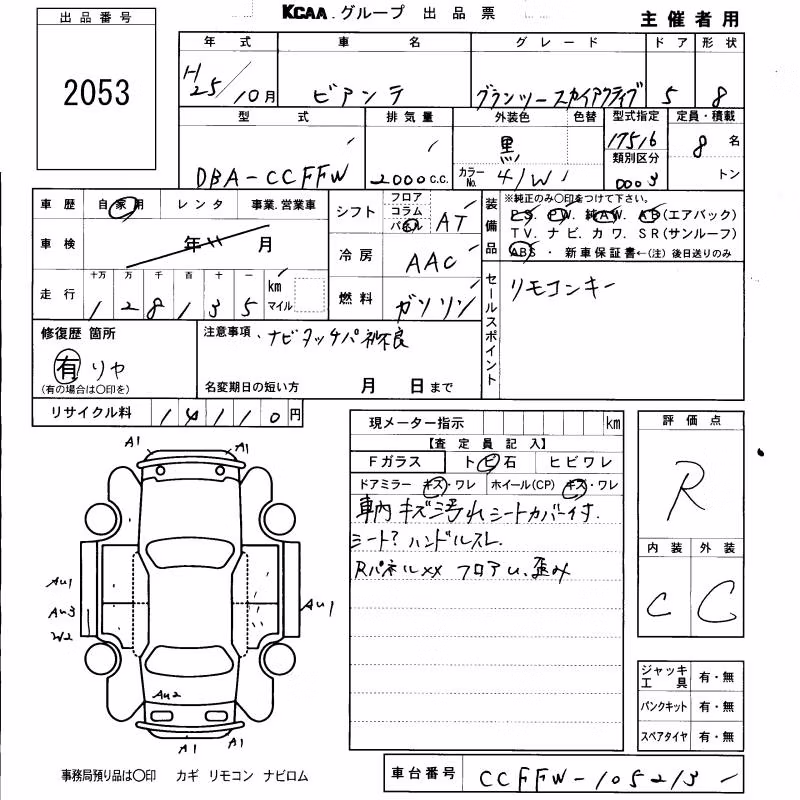 出品番号
2053
KCAA.グループ 出品票
主催者用
年式 車名 グレード ドア 形状
H25/10月 ビアンテ グランツースカイアクティブ 5 8
型式 排気量 外装色 色替 型式指定 定員・積載
DBA-CCFFW 2000c.c. 黒 17516 8名
カラーNo. 41W 類別区分 0003 トン
車歴 自家用 レンタ 事業.営業車
シフト フロア コラム パネル AT
装備品 ※純正のみ○印をつけて下さい。
P.S. P.W. 純A.W. A.B(エアバック)
T.V. ナビ. カワ. SR(サンルーフ)
ABS・新車保証書←(注)後日送りのみ
車検 年 月
冷房 AAC
走行 十万 万 千 百 十 一 km マイル
128135
燃料 ガソリン
セールスポイント
リモコンキー
修復歴 箇所
有 リヤ
(有の場合は○印を)
注意事項 ・ナビタッチパネル不良
名変期日の短い方 月 日まで
リサイクル料 14110円
現メーター指示 km
【査定員記入】
Fガラス トビ石 ヒビワレ
ドアミラー キズ・ワレ ホイール(CP) キズ・ワレ
車内キズ汚れシートカバー付.
シート? ハンドルスレ.
RパネルXX フロアU、歪み
評価点
R
内装 外装
C C
A1 A1
AU1
AU3
W2
AU1
AU2
A1 A1
ジャッキ工具 有・無
パンクキット 有・無
スペアタイヤ 有・無
事務局預り品は○印 カギ リモコン ナビロム
車台番号 CCFFW-105213